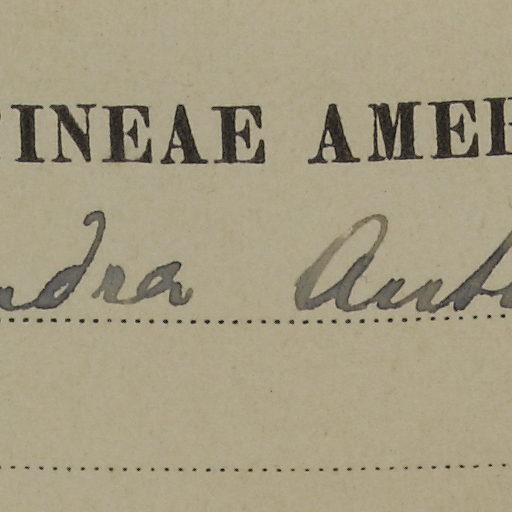 INEAE AME
ndra Aut